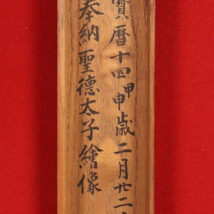 寶暦十四甲申歳二月廿二
奉納聖德太子繪像